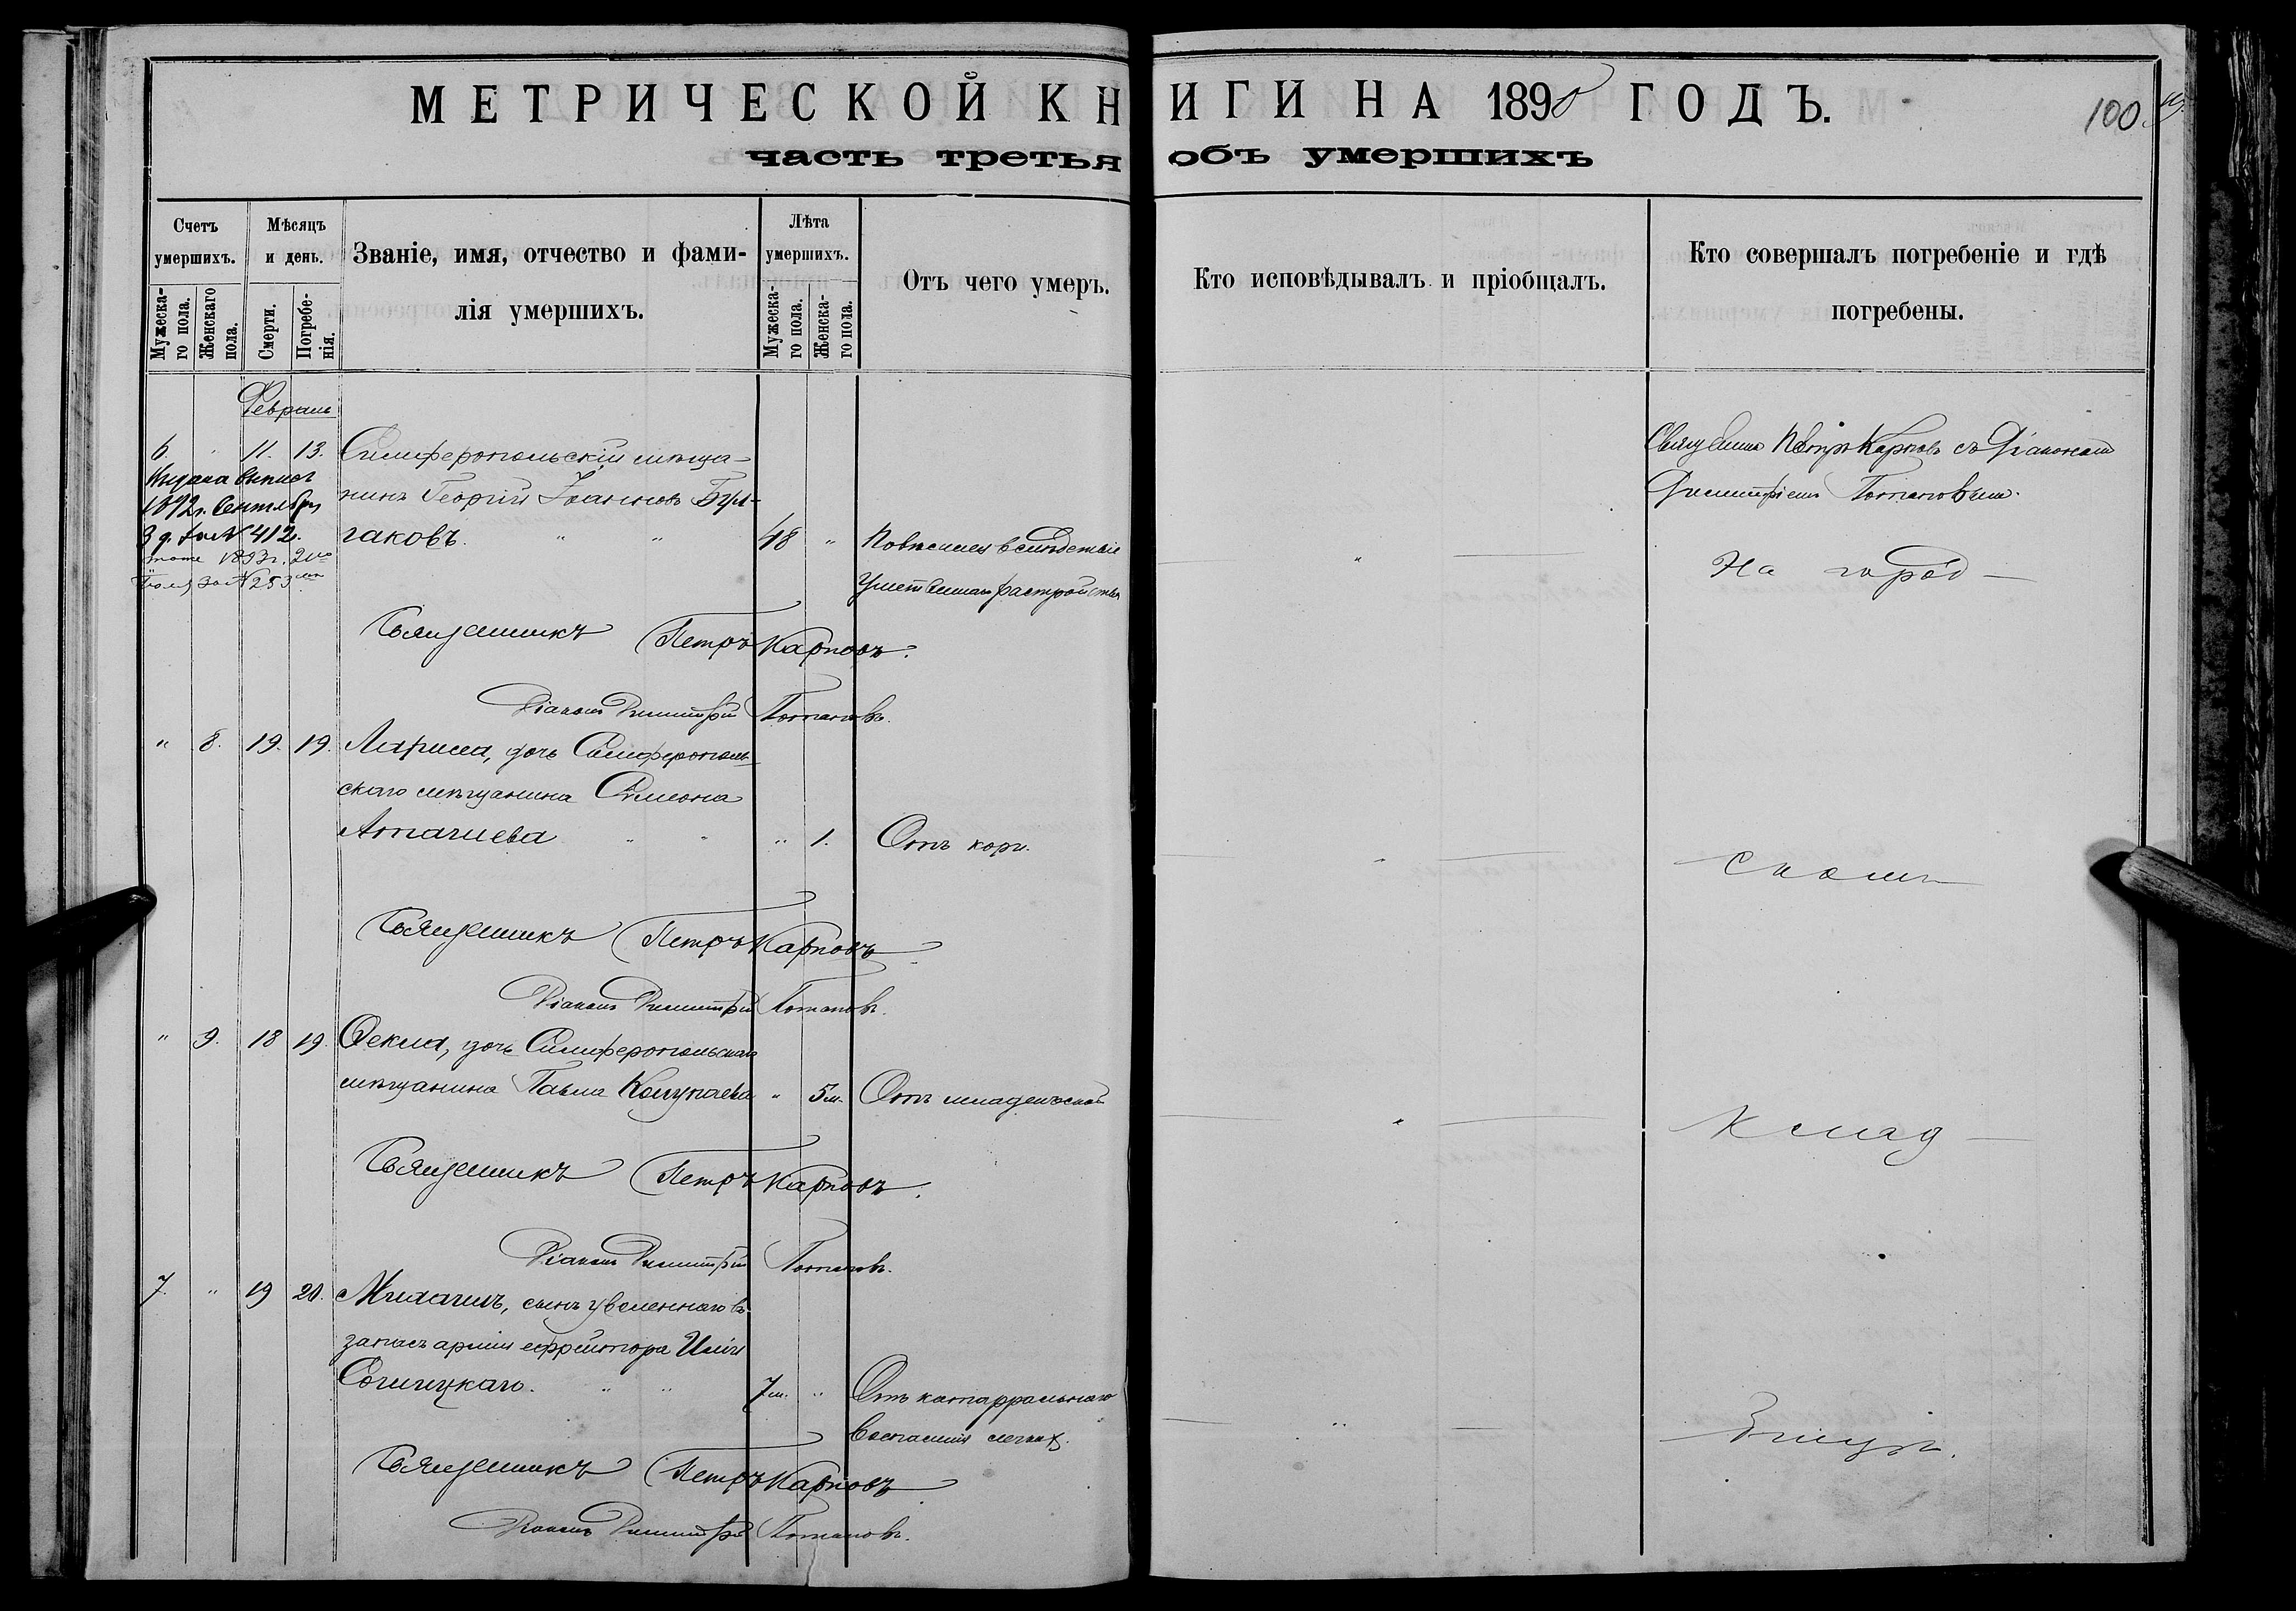 МЕТРИЧЕСКОЙ КНИГИ НА 1890 ГОДЪ.
100
часть третья объ умершихъ
Счетъ умершихъ.
Мужеска-
го пола.
Женскаго
пола.
Мѣсяцъ
и день.
Смерти.
Погребе-
нія.
Званіе, имя, отчество и фами-
лія умершихъ.
Лѣта
умершихъ.
Мужеска-
го пола.
Женска-
го пола.
Отъ чего умеръ.
Кто исповѣдывалъ и пріобщалъ.
Кто совершалъ погребеніе и гдѣ
погребены.
Февраль
6. " 11. 13. Симферопольскій мѣща-
нинъ Георгій Іоанновъ Бул-
гаковъ. " " 48 " Повѣсился вслѣдствіе
умственнаго растройства
Выдана выпись
1892 г. Сентября
3 д. за № 412.
тоже 1893 г. 2го
Іюля за № 253
Священникъ Петръ Карповъ съ Діакономъ
Димитріемъ Потаповымъ.
На город –
Священникъ Петръ Карповъ.
Діаконъ Димитрій Потаповъ.
" 8. 19. 19. Лариса, дочь Симферополь-
скаго мѣщанина Симеона
Апачиева " " " 1. Отъ кори.
скомъ
Священникъ Петръ Карповъ
Діаконъ Димитрій Потаповъ.
" 9. 18 19. Ѳекла, дочь Симферопольскаго
мѣщанина Павла Колупаева " 5 м. Отъ младенческой
клад –
Священникъ Петръ Карповъ.
Діаконъ Димитрій Потаповъ.
7. " 19 20. Михаилъ, сынъ уволеннаго въ
запасъ арміи ефрейтора Иліи
" " 7 м. " Отъ катарральнаго
воспаленія легкихъ.
бищѣ.
Священникъ Петръ Карповъ
Діаконъ Димитрій Потаповъ.